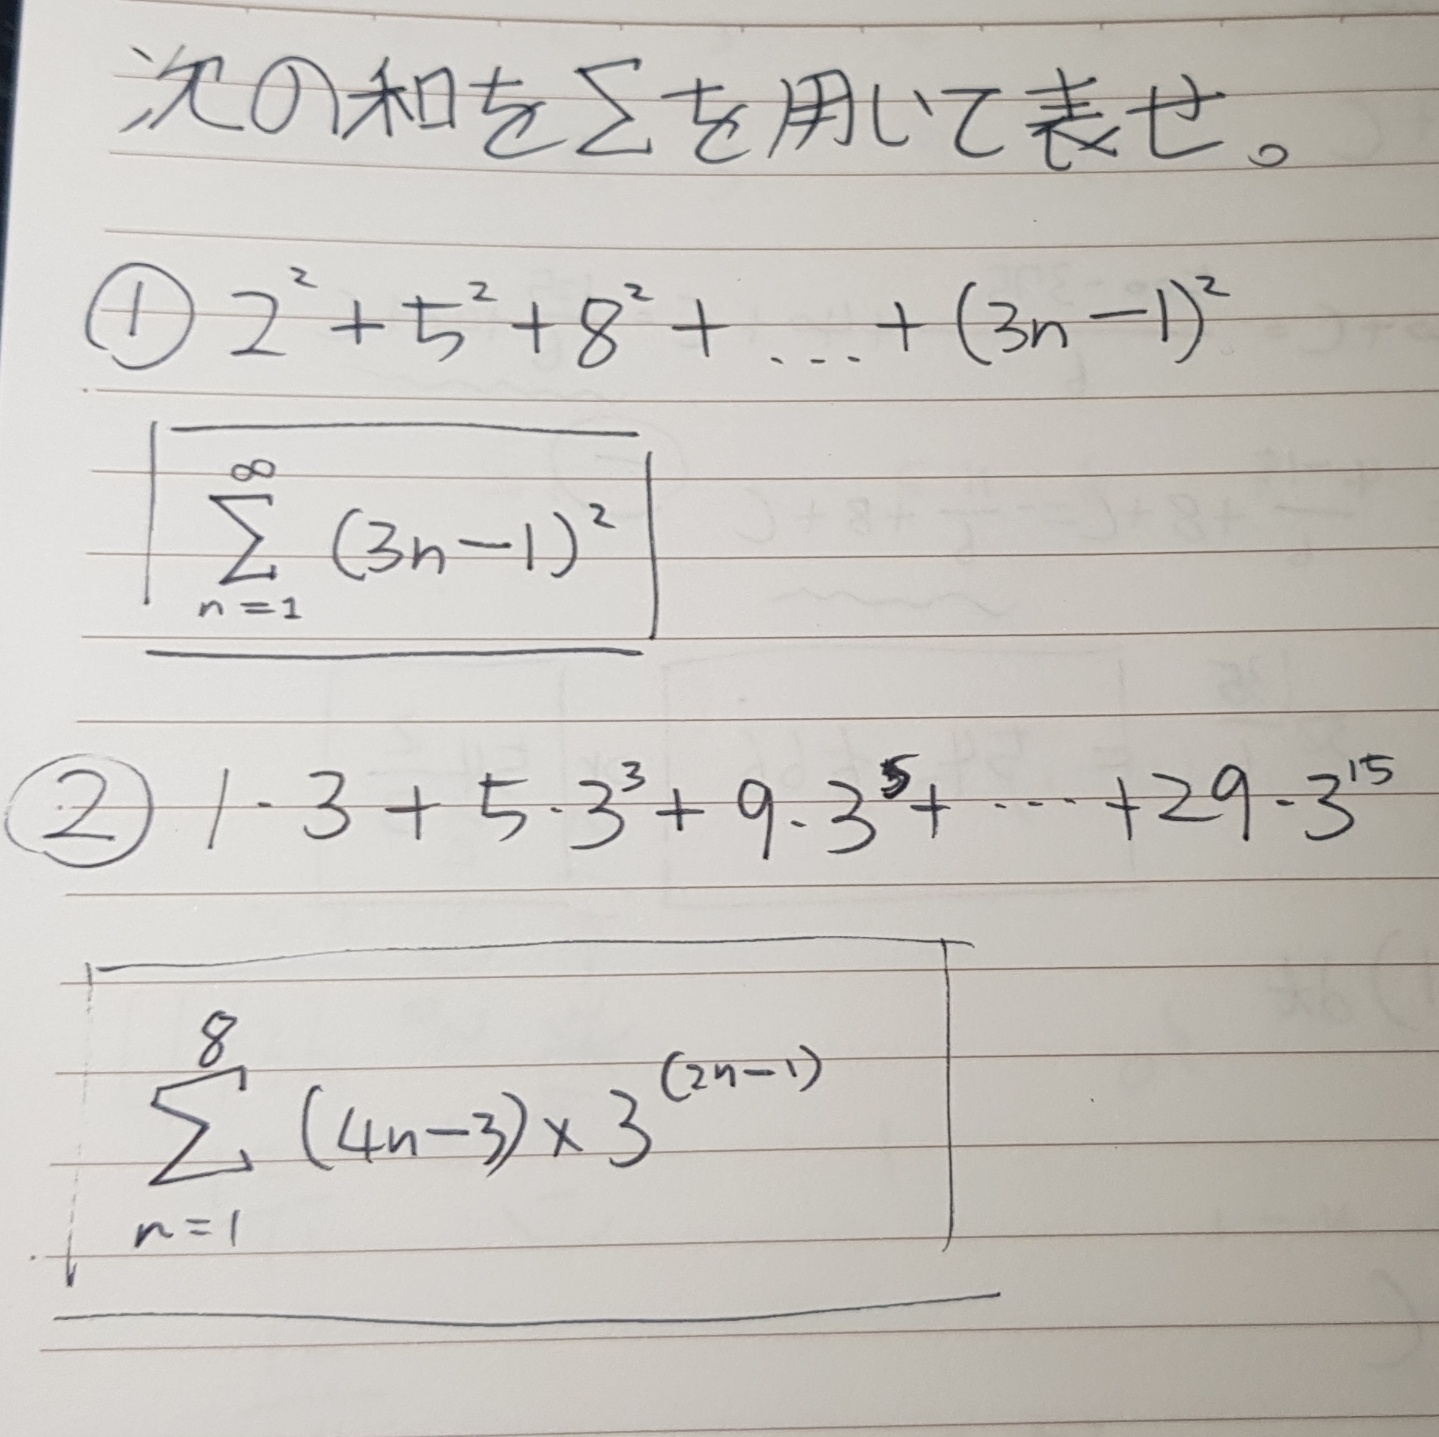 次の和をΣを用いて表せ。
① 2² + 5² + 8² + ... + (3n-1)²
∞
Σ (3n-1)²
n=1
② 1・3 + 5・3³ + 9・3⁵ + ... + 29・3¹⁵
8
Σ (4n-3)×3^(2n-1)
n=1